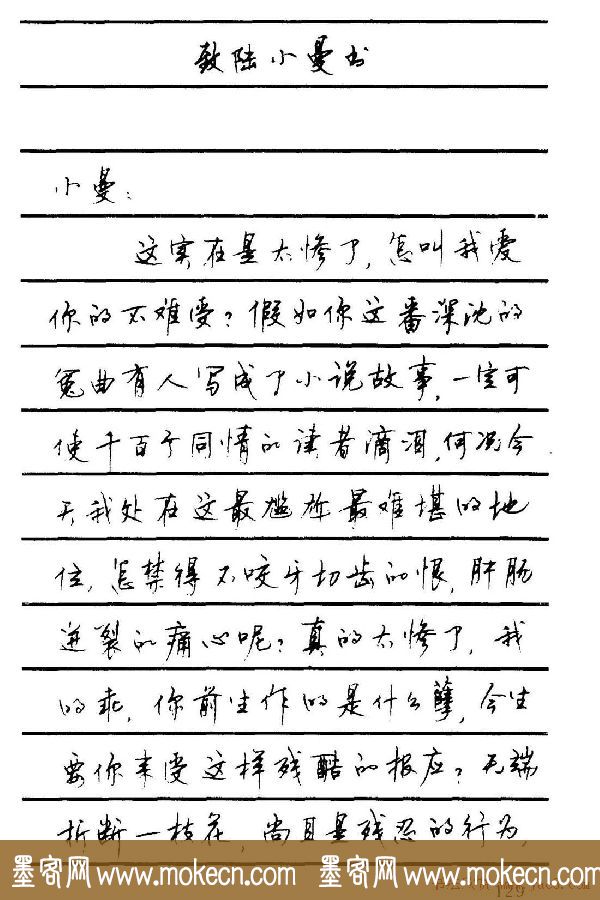 致陆小曼书
小曼：
这实在是太惨了，怎叫我爱
你的不难受？假如你这番深沈的
冤曲有人写成了小说故事，一定可
使千百个同情的读者滴泪，何况今
天我处在这最尴尬最难堪的地
位，怎禁得不咬牙切齿的恨，肝肠
迸裂的痛心呢？真的太惨了，我
的乖，你前生作的是什么孽，今生
要你来受这样残酷的报应？无端
折断一枝花，尚且是残忍的行为，
墨客网 www.mokecn.com 墨客网 www.mokecn.com
129